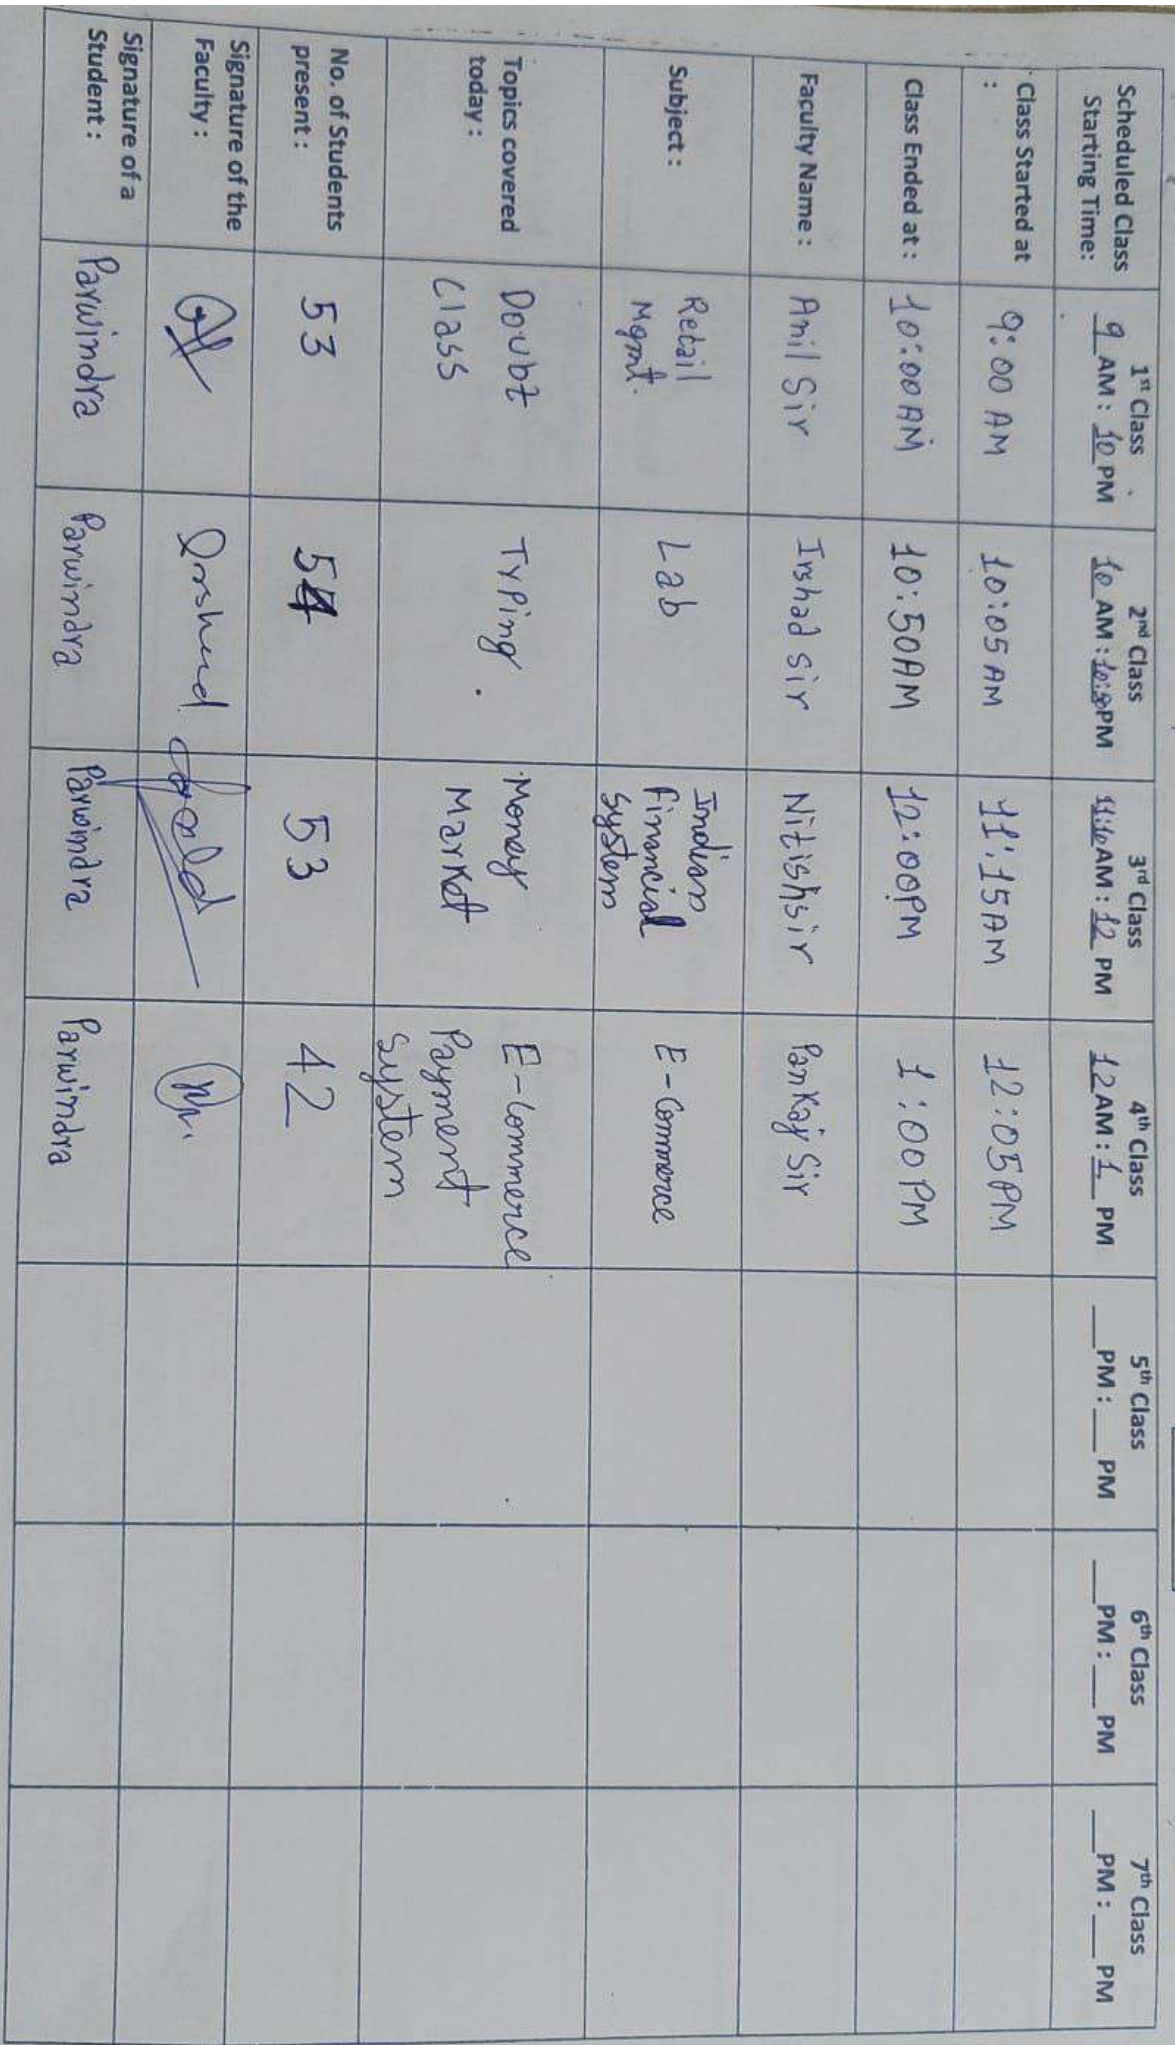 Scheduled Class
Starting Time:
1st Class
9 AM : 10 PM
2nd Class
10 AM : PM
3rd Class
11:10 AM : 12 PM
4th Class
12 AM : 1 PM
5th Class
__ PM : __ PM
6th Class
__ PM : __ PM
7th Class
__ PM : __ PM
Class Started at
:
9:00 AM
10:05 AM
11:15 AM
12:05 PM
Class Ended at :
10:00 AM
10:50 AM
12:00 PM
1:00 PM
Faculty Name :
Anil Sir
Irshad Sir
Nitish sir
Pankaj Sir
Subject :
Retail
Mgmt.
Lab
Indian
financial
system
E-Commerce
Topics covered
today :
Doubt
Class
Typing.
Money
Market
E-Commerce
Payment
System
No. of Students
present :
53
54
53
42
Signature of the
Faculty :
Signature of a
Student :
Parwindra
Parwindra
Parwindra
Parwindra